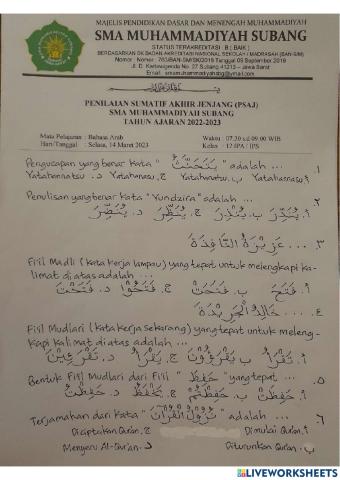 MAJELIS PENDIDIKAN DASAR DAN MENENGAH MUHAMMADIYAH
SMA MUHAMMADIYAH SUBANG
STATUS TERAKREDITASI : B ( BAIK )
BERDASARKAN SK BADAN AKREDITASI NASIONAL SEKOLAH / MADRASAH (BAN-S/M)
Nomor : 763/BAN-SM/SK/2019 Tanggal 09 September 2019
Jl. D. Kartawigenda No. 27 Subang 41213 – Jawa Barat
PENILAIAN SUMATIF AKHIR JENJANG (PSAJ)
SMA MUHAMMADIYAH SUBANG
TAHUN AJARAN 2022-2023
Mata Pelajaran : Bahasa Arab Waktu : 07.30 sd 09.00 WIB
Hari/Tanggal : Selasa, 14 Maret 2023 Kelas : 12 IPA / IPS
Pengucapan yang benar kata " يَتَحَنَّثُ " adalah ... .١
Yatahannatsu .د Yatahanasu .ج Yatahanatu .ب Yatahannasu .أ
Penulisan yang benar kata "Yundzira" adalah ... .٢
أ. يُنْذِرَ ب. يُنْذِرُ ج. يُنْظِرَ د. يُنْضِرَ
٣. ... عَزِيْزَةُ النَّافِذَةَ
Fi'il Madli ( kata kerja lampau) yang tepat untuk melengkapi kalimat di atas adalah ...
أ. فَتَحَ ب. فَتَحَتْ ج. فَتَحُوْا د. فَتَحْتَ
٤. ... خَالِدُ الْجَرِيْدَةَ
Fi'il Mudlari ( kata kerja sekarang) yang tepat untuk melengkapi kalimat di atas adalah ...
أ. تَقْرَأُ ب. يَقْرَؤُوْنَ ج. يَقْرَأُ د. تَقْرَئِيْنَ
Bentuk Fi'il Mudlari dari Fi'il " حَفِظَ " yang tepat ... .٥
أ. حَفِظْتَ ب. حَفِظْتُمْ ج. يَحْفَظُ د. حَفِظْتُ
Terjamahan dari Kata " نُزُوْلُ الْقُرْآنِ " adalah ... .٦
Diciptakan Quran .ج Dimulai Quran .أ
Menyeru Al-Qur'an .د Diturunkan Qur'an .ب
LIVEWORKSHEETS